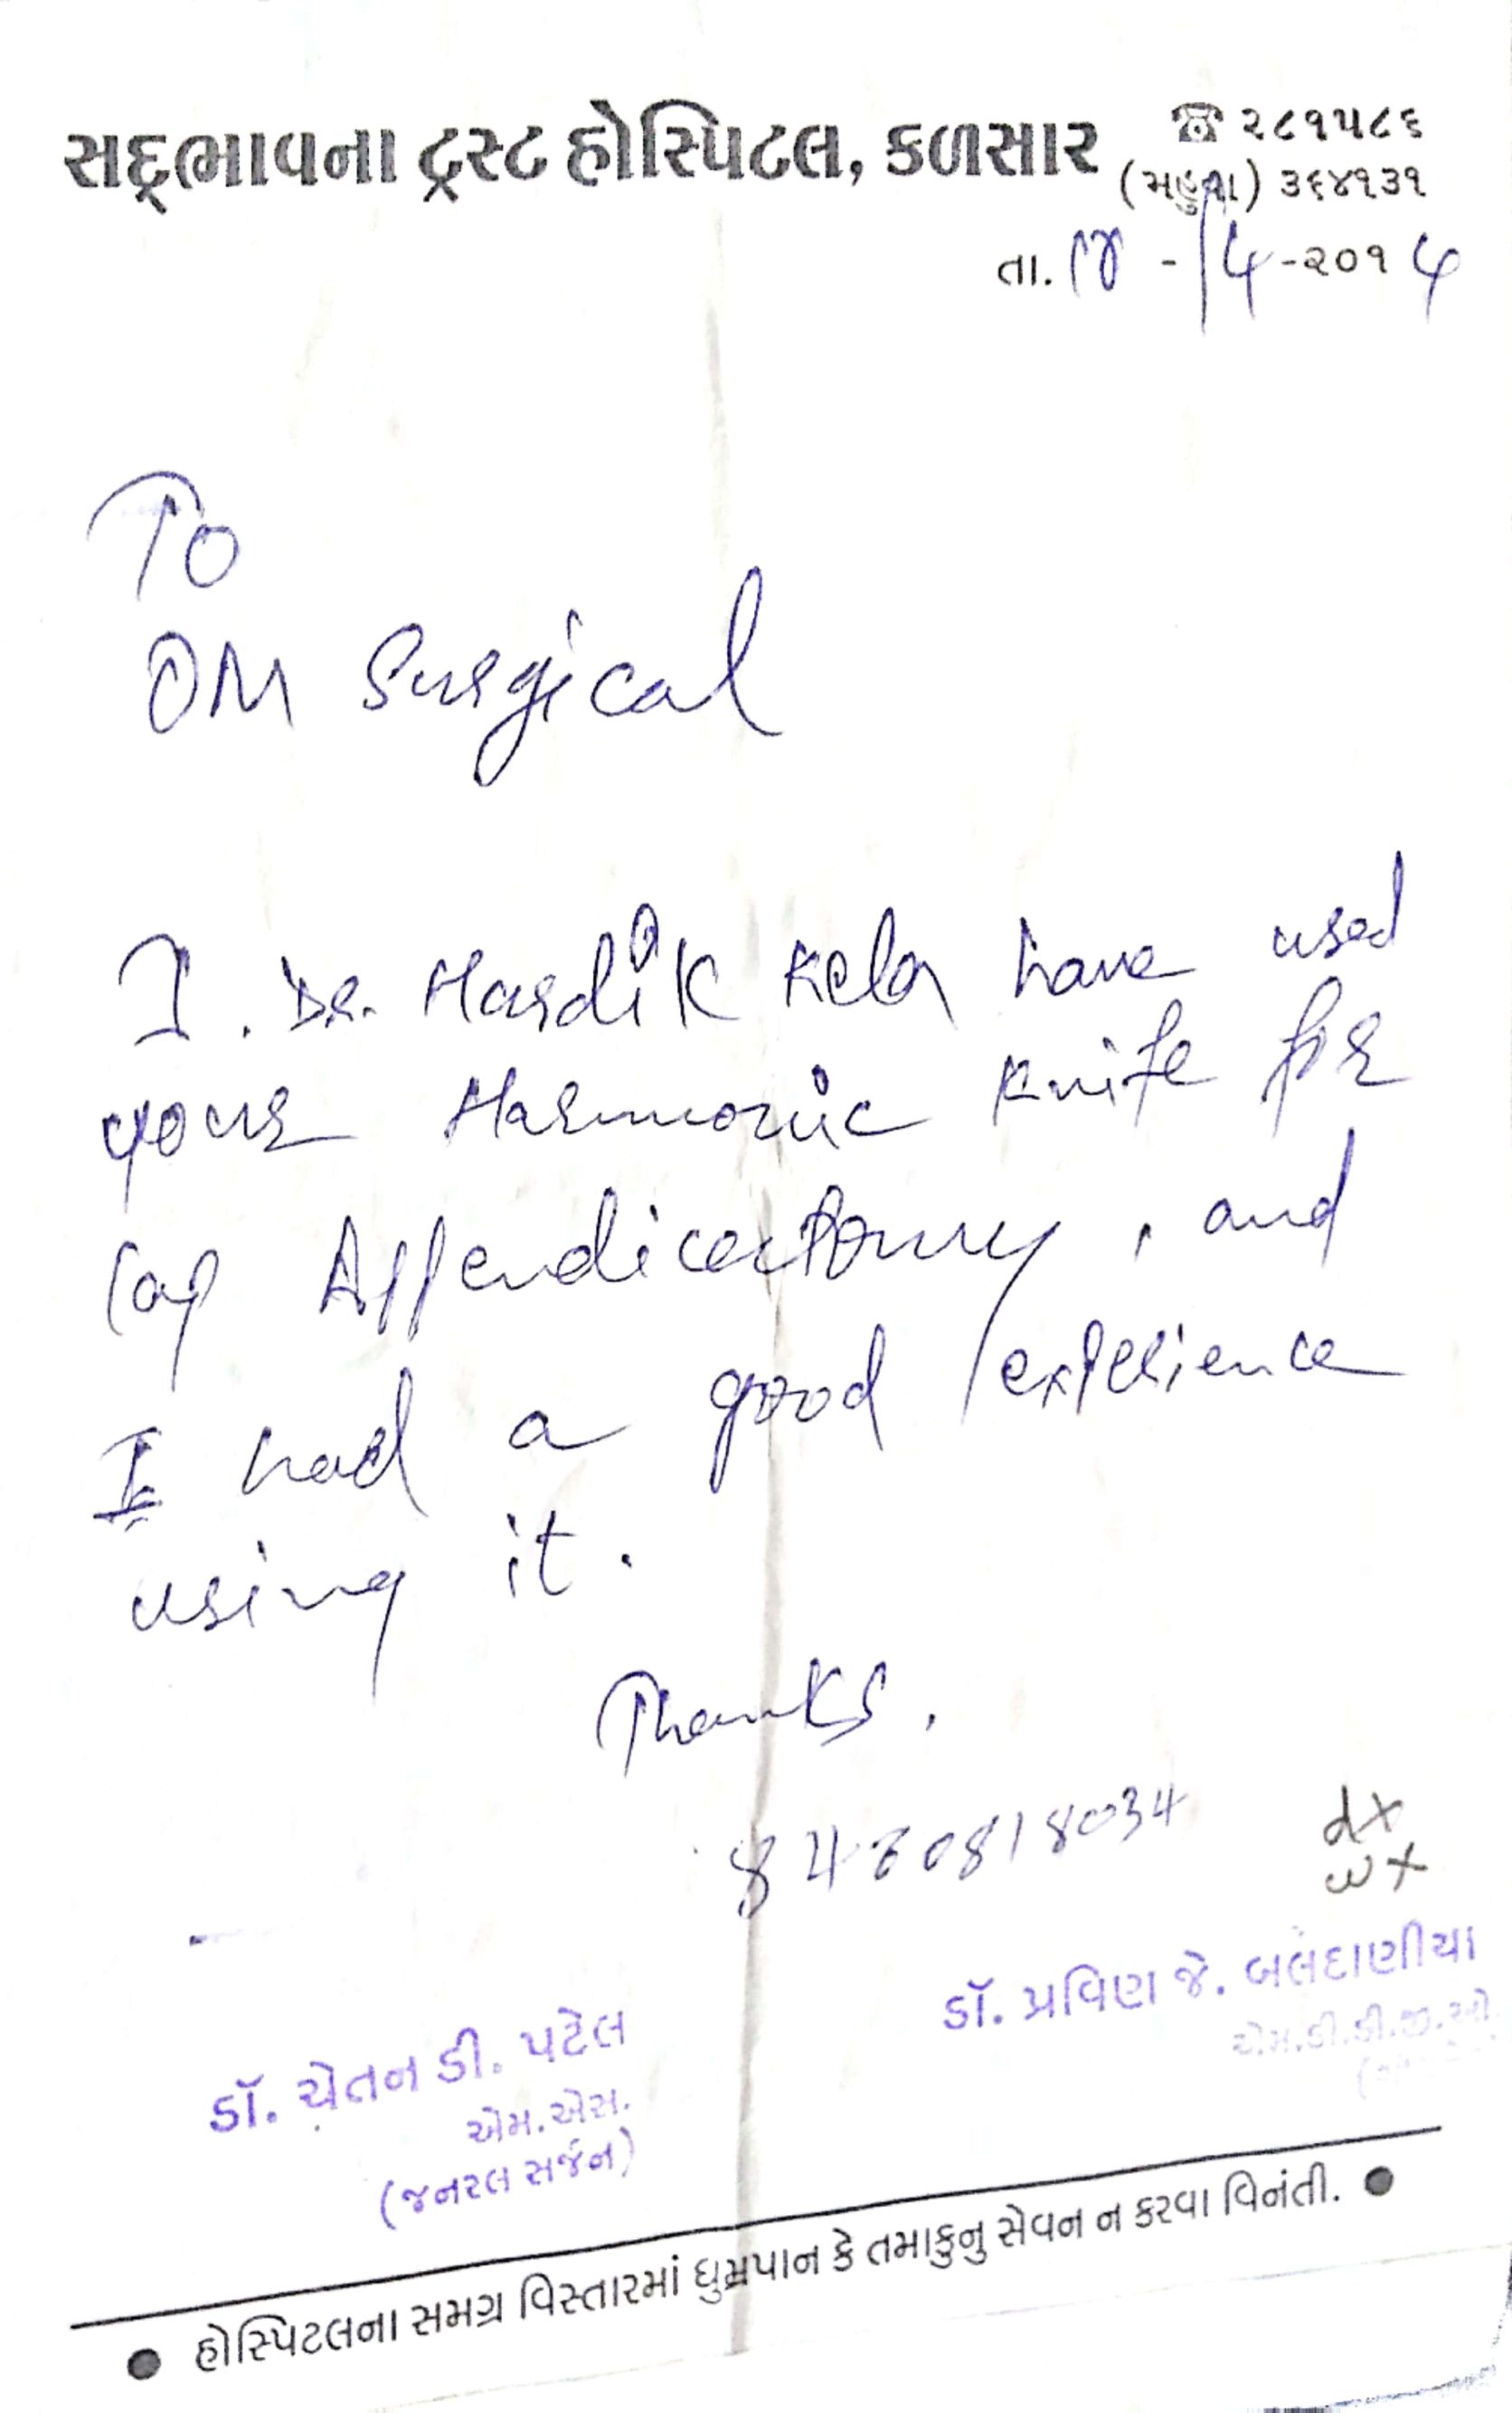 સદ્ભાવના ટ્રસ્ટ હોસ્પિટલ, કળસાર
☎ ૨૮૧૫૮૬
(મહુવા) ૩૬૪૧૩૧
તા. - -૨૦૧
To
OM Surgical
I. Dr. Hardik Kela have used
your Harmonic Knife for
Lap Appendicectomy, and
I had a good experience
using it.
Thanks.
ડૉ. પ્રવિણ જે. બલદાણીયા
એમ.ડી.ડી.જી.ઓ.
ડૉ. ચેતન ડી. પટેલ
એમ.એસ.
(જનરલ સર્જન)
● હોસ્પિટલના સમગ્ર વિસ્તારમાં ધુમ્રપાન કે તમાકુનુ સેવન ન કરવા વિનંતી. ●